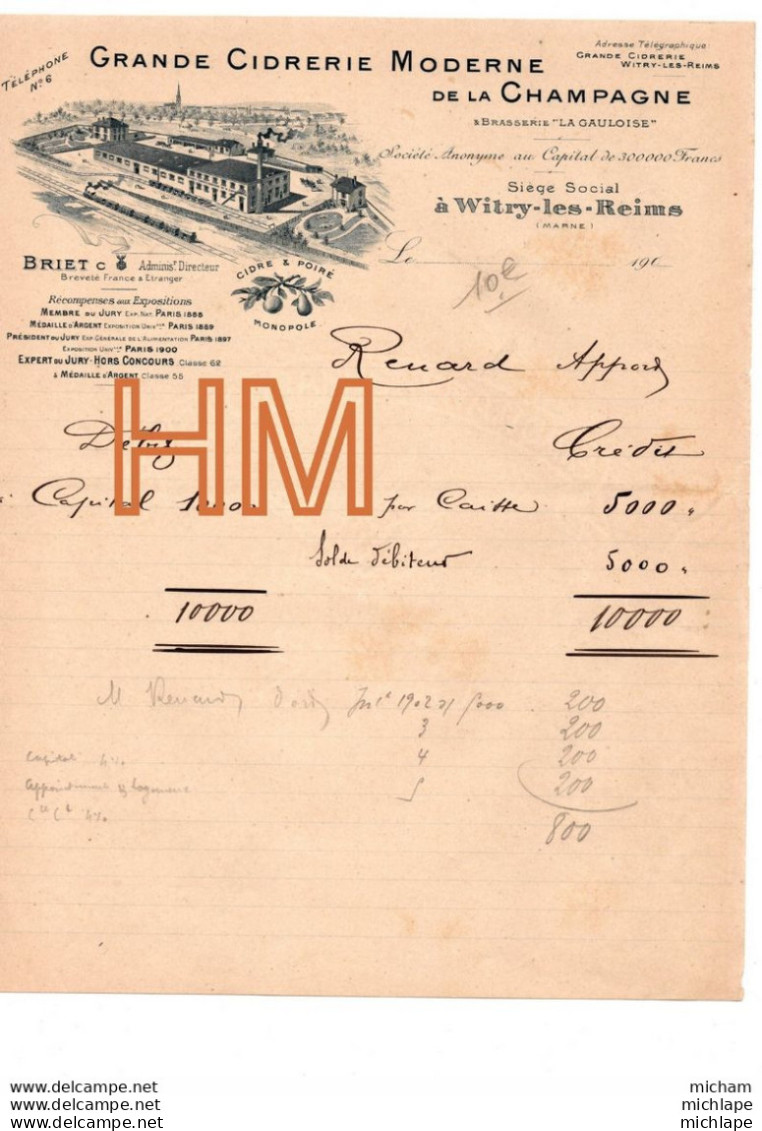 TÉLÉPHONE
N° 6
GRANDE CIDRERIE MODERNE
DE LA CHAMPAGNE
& BRASSERIE "LA GAULOISE"
Adresse Télégraphique:
GRANDE CIDRERIE
WITRY-LES-REIMS
Société Anonyme au Capital de 300000 Francs
Siège Social
à Witry-les-Reims
(MARNE)
Le 190
BRIET C Adminisr. Directeur
Breveté France & Etranger
CIDRE & POIRÉ
MONOPOLE
Récompenses aux Expositions
MEMBRE DU JURY EXP. NAT. PARIS 1888
MÉDAILLE D'ARGENT EXPOSITION UNIVlle PARIS 1889
PRÉSIDENT DU JURY EXP. GÉNÉRALE DE L'ALIMENTATION PARIS 1897
EXPOSITION UNIVlle PARIS 1900
EXPERT DU JURY-HORS CONCOURS Classe 62
& MÉDAILLE D'ARGENT Classe 55
Renard
HM
Crédit
Capital par Caisse 5000 "
Solde débiteur 5000 "
10000 10000
M Renard 1902 5000 200
3 200
4 200
5 200
800
Capital 4%
4%
http://www.delcampe.net
micham
michlape
michlape